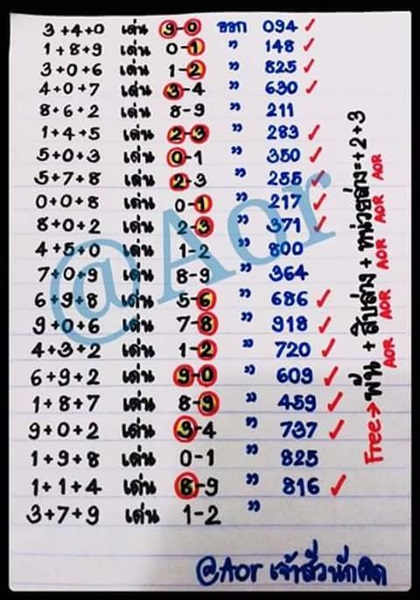 3+4+0 เด่น 9-0 ออก 094 ✓
1+8+9 เด่น 0-1 " 148 ✓
3+0+6 เด่น 1-2 " 825 ✓
4+0+7 เด่น 3-4 " 630 ✓
8+6+2 เด่น 8-9 " 211
1+4+5 เด่น 2-3 " 283 ✓
5+0+3 เด่น 0-1 " 350 ✓
5+7+8 เด่น 2-3 " 255 ✓
0+0+8 เด่น 0-1 " 217 ✓
8+0+2 เด่น 2-3 " 371 ✓
4+5+0 เด่น 1-2 " 800
7+0+9 เด่น 8-9 " 364
6+9+8 เด่น 5-6 " 686 ✓
9+0+6 เด่น 7-8 " 918 ✓
4+3+2 เด่น 1-2 " 720 ✓
6+9+2 เด่น 9-0 " 609 ✓
1+8+7 เด่น 8-9 " 459 ✓
9+0+2 เด่น 3-4 " 737 ✓
1+9+8 เด่น 0-1 " 825
1+1+4 เด่น 8-9 " 816 ✓
3+7+9 เด่น 1-2 "
Free→พัน+สิบล่าง+หน่วยล่าง=+2+3
AOR AOR AOR AOR AOR
@Aor
@Aor เจ้าสัวนักคิด